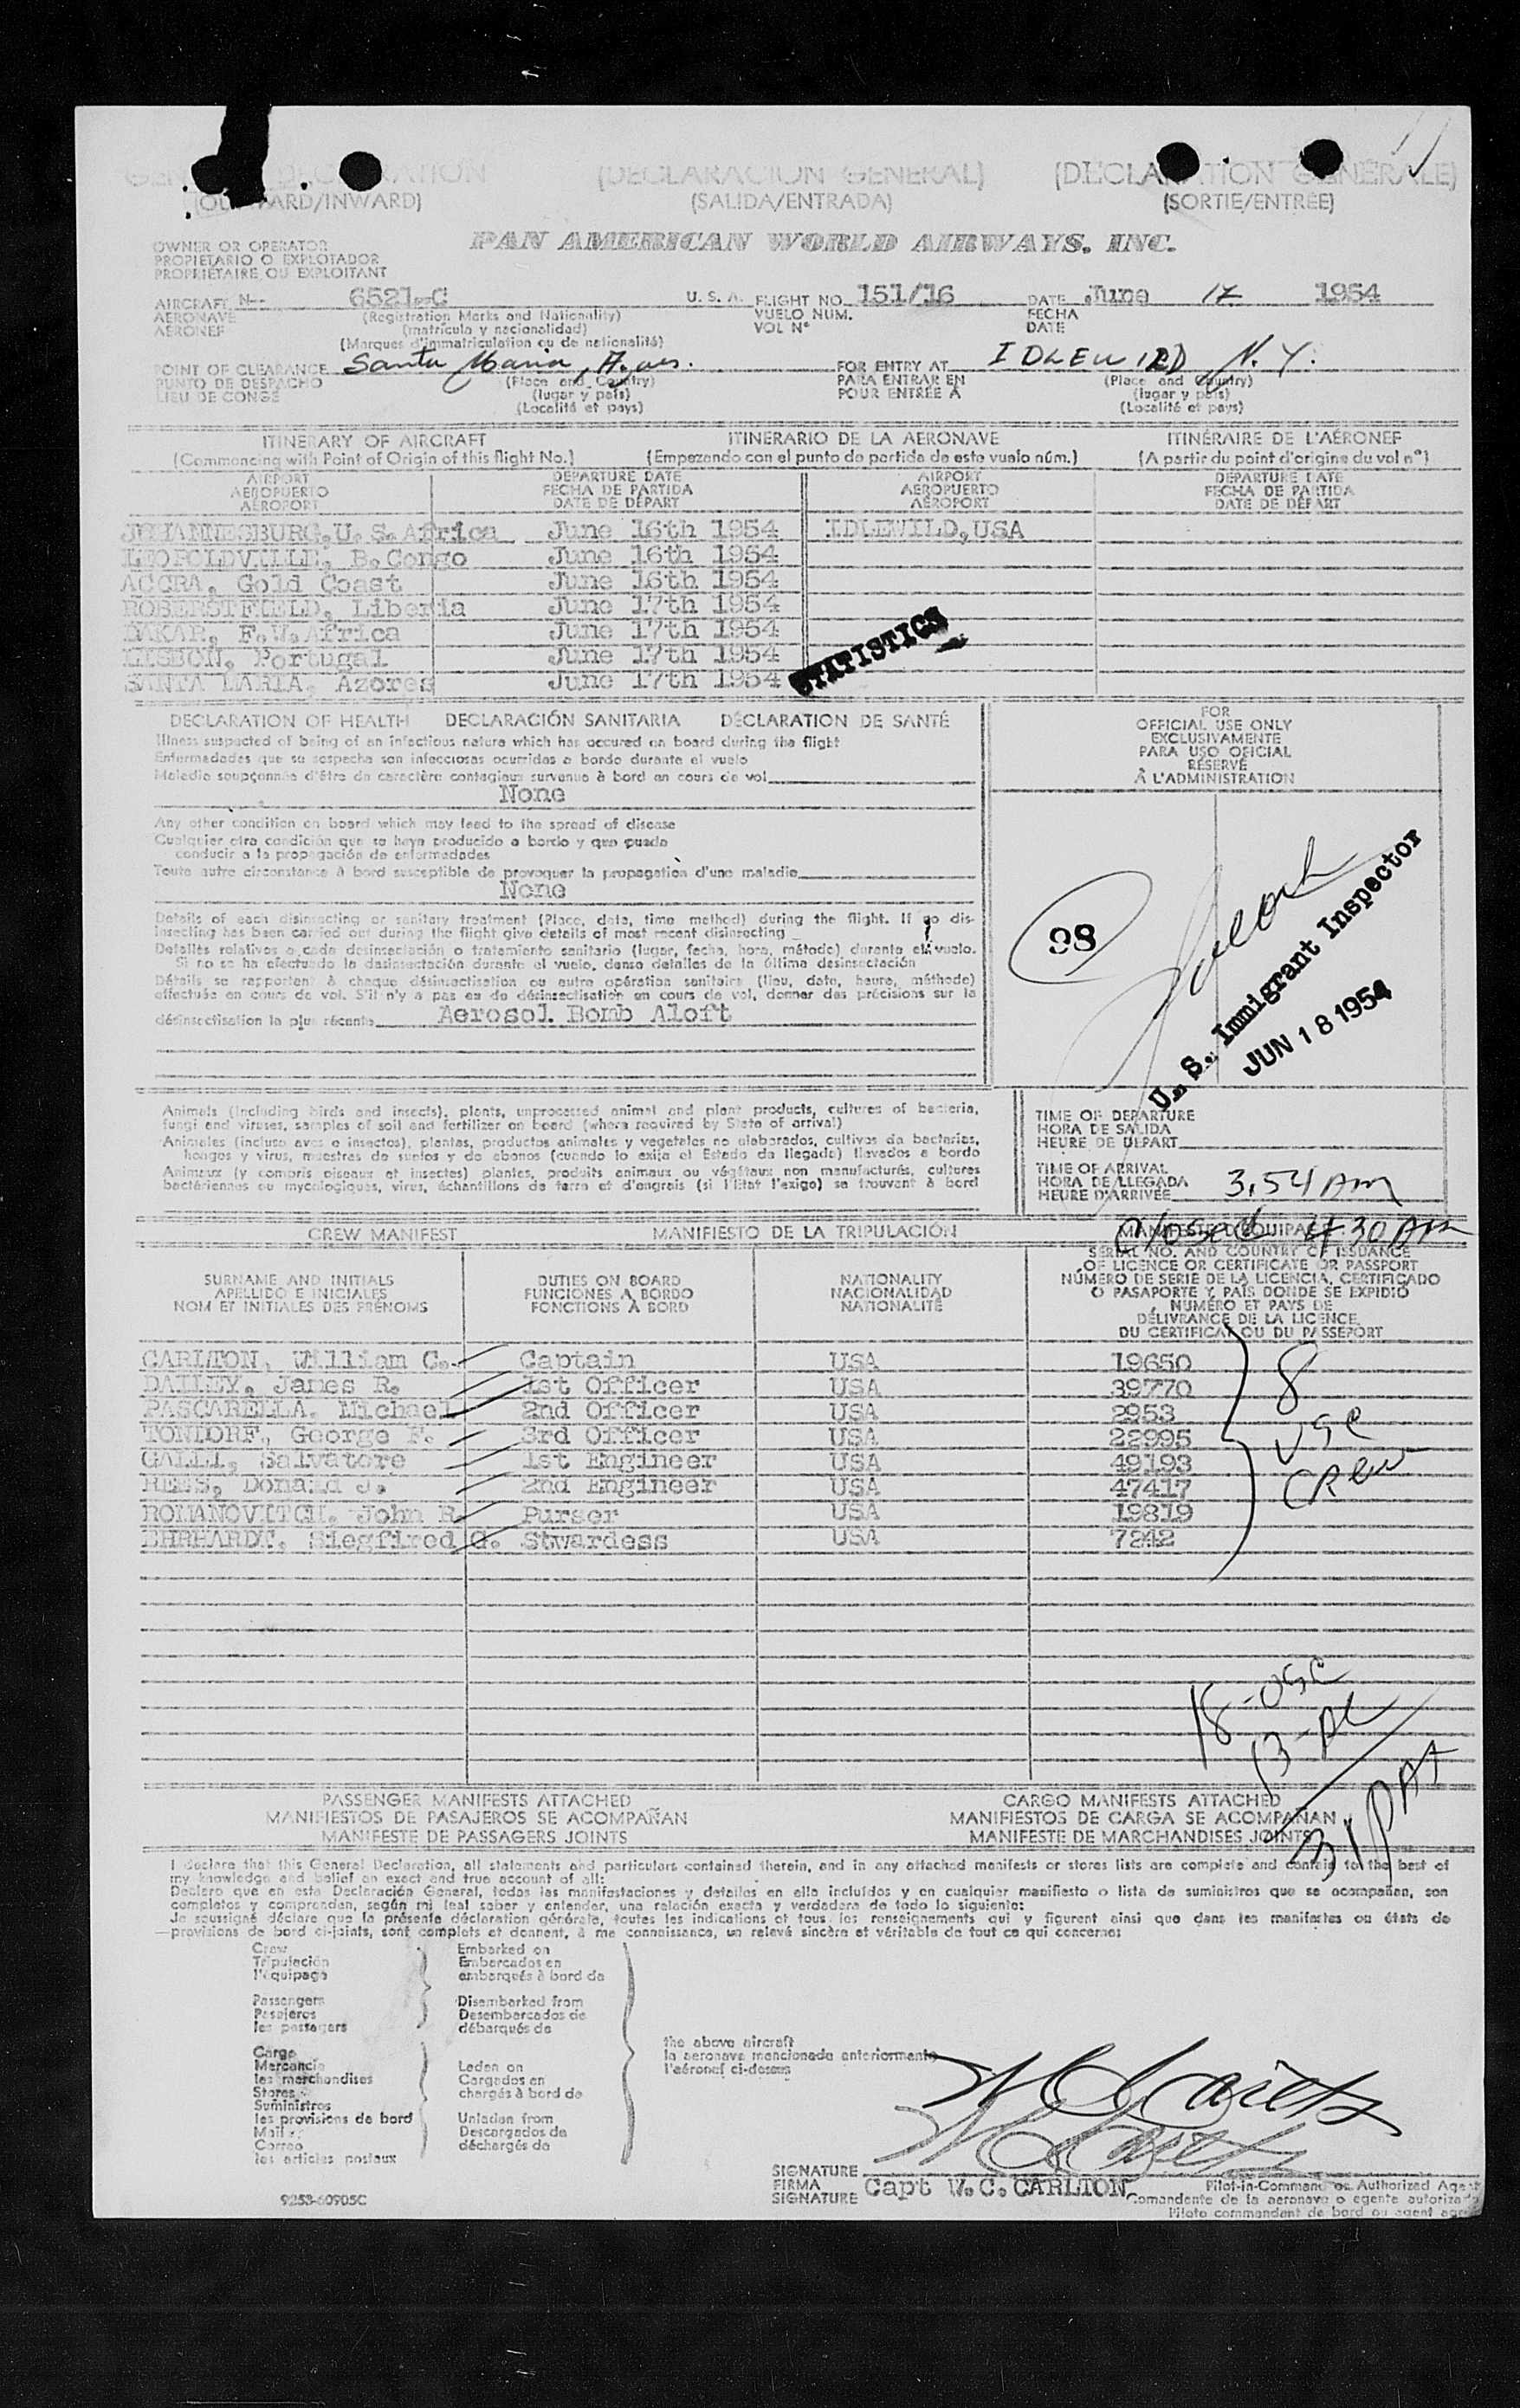 GENERAL DECLARATION (DECLARACION GENERAL) (DECLARATION GÉNÉRALE)
(OUTWARD/INWARD) (SALIDA/ENTRADA) (SORTIE/ENTRÉE)
OWNER OR OPERATOR
PROPIETARIO O EXPLOTADOR
PROPRIÉTAIRE OU EXPLOITANT
PAN AMERICAN WORLD AIRWAYS, INC.
AIRCRAFT N-- 6521-C U. S. A. FLIGHT NO. 151/16 DATE June 17 1954
AERONAVE (Registration Marks and Nationality) VUELO NUM. FECHA
AÉRONEF (matrícula y nacionalidad) VOL Nº DATE
(Marques d'immatriculation ou de nationalité)
POINT OF CLEARANCE Santa Maria, FOR ENTRY AT IDLEWILD N.Y.
PUNTO DE DESPACHO (Place and Country) PARA ENTRAR EN (Place and Country)
LIEU DE CONGÉ (lugar y país) POUR ENTRÉE A (lugar y país)
(Localité et pays) (Localité et pays)
ITINERARY OF AIRCRAFT ITINERARIO DE LA AERONAVE ITINÉRAIRE DE L'AÉRONEF
(Commencing with Point of Origin of this flight No.) (Empezando con el punto de partida de este vuelo núm.) (A partir du point d'origine du vol nº)
AIRPORT DEPARTURE DATE AIRPORT DEPARTURE DATE
AEROPUERTO FECHA DE PARTIDA AEROPUERTO FECHA DE PARTIDA
AÉROPORT DATE DE DÉPART AÉROPORT DATE DE DÉPART
JOHANNESBURG,U.S.Africa June 16th 1954 IDLEWILD,USA
LEOPOLDVILLE, B.Congo June 16th 1954
ACCRA, Gold Coast June 16th 1954
ROBERSTFIELD, Liberia June 17th 1954
DAKAR, F.W.Africa June 17th 1954
LISBON, Portugal June 17th 1954
SANTA MARIA, Azores June 17th 1954
STATISTICS
DECLARATION OF HEALTH DECLARACIÓN SANITARIA DÉCLARATION DE SANTÉ
Illness suspected of being of an infectious nature which has occured on board during the flight
Enfermedades que se sospecha son infecciosas ocurridas a bordo durante el vuelo
Maladie soupçonnée d'être de caractère contagieux survenue à bord en cours de vol
None
Any other condition on board which may lead to the spread of disease
Cualquier otra condición que se haya producido a bordo y que pueda
conducir a la propagación de enfermedades
Toute autre circonstance à bord susceptible de provoquer la propagation d'une maladie
None
Details of each disinsecting or sanitary treatment (Place, date, time method) during the flight. If no dis-
insecting has been carried out during the flight give details of most recent disinsecting
Detalles relativos a cada desinsectación o tratamiento sanitario (lugar, fecha, hora, método) durante el vuelo.
Si no se ha efectuado la desinsectación durante el vuelo, dense detalles de la última desinsectación
Détails se rapportant à chaque désinsectisation ou autre opération sanitaire (lieu, date, heure, méthode)
effectuée en cours de vol. S'il n'y a pas eu de désinsectisation en cours de vol, donner des précisions sur la
désinsectisation la plus récente Aerosol Bomb Aloft
FOR
OFFICIAL USE ONLY
EXCLUSIVAMENTE
PARA USO OFICIAL
RÉSERVÉ
À L'ADMINISTRATION
98
U. S. Immigrant Inspector
JUN 18 1954
Animals (including birds and insects), plants, unprocessed animal and plant products, cultures of bacteria,
fungi and viruses, samples of soil and fertilizer on board (where required by State of arrival)
Animales (incluso aves e insectos), plantas, productos animales y vegetales no elaborados, cultivos de bacterias,
hongos y virus, muestras de suelos y de abonos (cuando lo exija el Estado de llegada) llevados a bordo
Animaux (y compris oiseaux et insectes) plantes, produits animaux ou végétaux non manufacturés, cultures
bactériennes ou mycologiques, virus, échantillons de terre et d'engrais (si l'État l'exige) se trouvant à bord
TIME OF DEPARTURE
HORA DE SALIDA
HEURE DE DÉPART
TIME OF ARRIVAL
HORA DE LLEGADA
HEURE D'ARRIVÉE 3,54 AM
closed 4:30 AM
CREW MANIFEST MANIFIESTO DE LA TRIPULACIÓN MANIFESTE D'ÉQUIPAGE
SURNAME AND INITIALS DUTIES ON BOARD NATIONALITY
APELLIDO E INICIALES FUNCIONES A BORDO NACIONALIDAD
NOM ET INITIALES DES PRÉNOMS FONCTIONS À BORD NATIONALITÉ
SERIAL NO. AND COUNTRY OF ISSUANCE
OF LICENCE OR CERTIFICATE OR PASSPORT
NÚMERO DE SERIE DE LA LICENCIA, CERTIFICADO
O PASAPORTE Y PAÍS DONDE SE EXPIDIÓ
NUMÉRO ET PAYS DE
DÉLIVRANCE DE LA LICENCE,
DU CERTIFICAT OU DU PASSEPORT
CARLTON, William C. Captain USA 19650
DAILEY, James R. 1st Officer USA 39770
PASCARELLA, Michael 2nd Officer USA 2953
TONDORF, George F. 3rd Officer USA 22995
GALLI, Salvatore 1st Engineer USA 49193
HESS, Donald J. 2nd Engineer USA 47417
ROMANOVITCH, John R. Purser USA 19819
EHRHARDT, Siegfired G. Stwardess USA 7242
8
USC
CREW
18-USC
13-AL
31 PAX
PASSENGER MANIFESTS ATTACHED CARGO MANIFESTS ATTACHED
MANIFIESTOS DE PASAJEROS SE ACOMPAÑAN MANIFIESTOS DE CARGA SE ACOMPAÑAN
MANIFESTE DE PASSAGERS JOINTS MANIFESTE DE MARCHANDISES JOINTS
I declare that this General Declaration, all statements and particulars contained therein, and in any attached manifests or stores lists are complete and contain to the best of
my knowledge and belief an exact and true account of all:
Declaro que en esta Declaración General, todas las manifestaciones y detalles en ella incluídos y en cualquier manifiesto o lista de suministros que se acompañan, son
completos y comprenden, según mi leal saber y entender, una relación exacta y verdadera de todo lo siguiente:
Je soussigné déclare que la présente déclaration générale, toutes les indications et tous les renseignements qui y figurent ainsi que dans les manifestes ou états de
provisions de bord ci-joints, sont complets et donnent, à ma connaissance, un relevé sincère et véritable de tout ce qui concerne:
Crew Embarked on
Tripulación Embarcados en
l'équipage embarqués à bord de
Passengers Disembarked from
Pasajeros Desembarcados de
les passagers débarqués de
the above aircraft
la aeronave mencionada anteriormente
l'aéronef ci-dessus
Cargo
Mercancía Laden on
les marchandises Cargados en
Stores chargés à bord de
Suministros
les provisions de bord Unladen from
Mail Descargados de
Correo déchargés de
les articles postaux
SIGNATURE
FIRMA
SIGNATURE Capt W.C.CARLTON
Pilot-in-Command or Authorized Agent
Comandante de la aeronave o agente autorizado
Pilote commandant de bord ou agent
9253-60905C